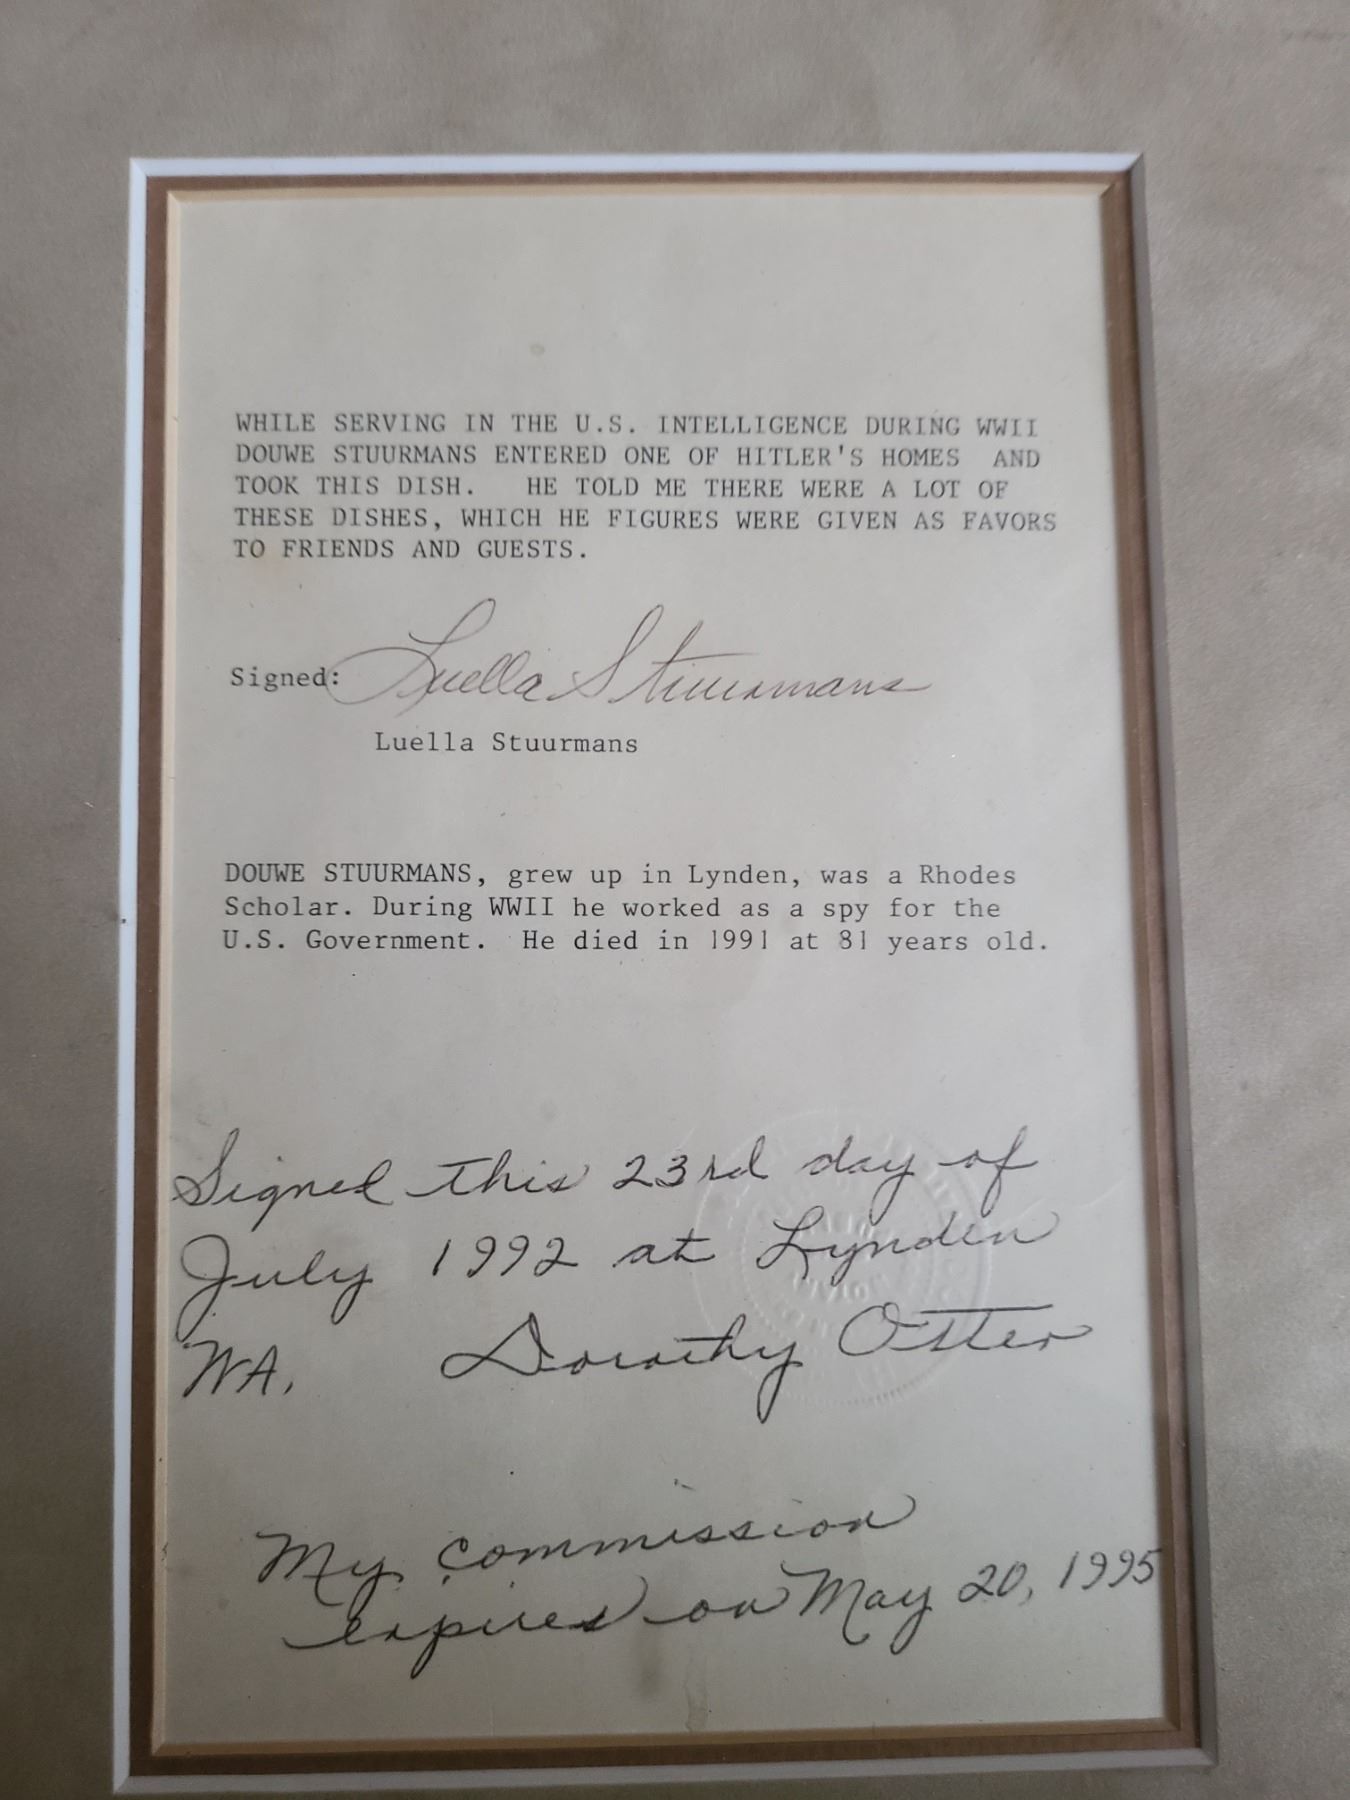 WHILE SERVING IN THE U.S. INTELLIGENCE DURING WWII
DOUWE STUURMANS ENTERED ONE OF HITLER'S HOMES AND
TOOK THIS DISH. HE TOLD ME THERE WERE A LOT OF
THESE DISHES, WHICH HE FIGURES WERE GIVEN AS FAVORS
TO FRIENDS AND GUESTS.
Signed: Luella Stuurmans
Luella Stuurmans
DOUWE STUURMANS, grew up in Lynden, was a Rhodes
Scholar. During WWII he worked as a spy for the
U.S. Government. He died in 1991 at 81 years old.
Signed this 23rd day of
July 1992 at Lynden
WA. Dorothy Otter
My commission
expires on May 20, 1995